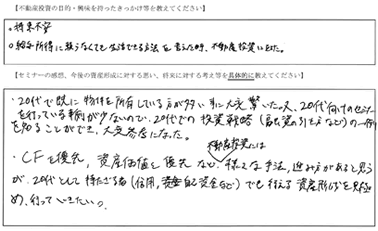 【不動産投資の目的・興味を持ったきっかけ等を教えてください】
・将来不安
・給与所得に頼らなくても生活できる方法を考えた時、不動産投資でした。
【セミナーの感想、今後の資産形成に対する思い、将来に対する考え等を具体的に教えてください】
・20代で既に物件を所有している方が多い事に大変驚いた。又、20代向けのセミナー
を行っている事例が少ないので、20代での投資戦略（融資の引き方など）の一例
を知ることができ、大変参考になった。
不動産投資には
・CFを優先、資産価値を優先など、様々な手法、進め方があると思う
が、20代として持たざる者（信用、自己資金など）でも行える資産形成を見極
め、行っていきたい。